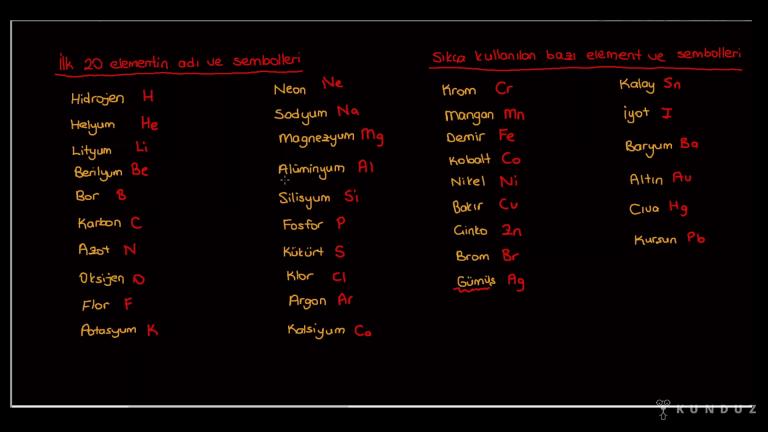 İlk 20 elementin adı ve sembolleri
Hidrojen H
Helyum He
Lityum Li
Berilyum Be
Bor B
Karbon C
Azot N
Oksijen O
Flor F
Potasyum K
Neon Ne
Sodyum Na
Magnezyum Mg
Alüminyum Al
Silisyum Si
Fosfor P
Kükürt S
Klor Cl
Argon Ar
Kalsiyum Ca
Sıkça kullanılan bazı element ve sembolleri
Krom Cr
Mangan Mn
Demir Fe
Kobalt Co
Nikel Ni
Bakır Cu
Çinko Zn
Brom Br
Gümüş Ag
Kalay Sn
İyot I
Baryum Ba
Altın Au
Civa Hg
Kurşun Pb
KUNDUZ